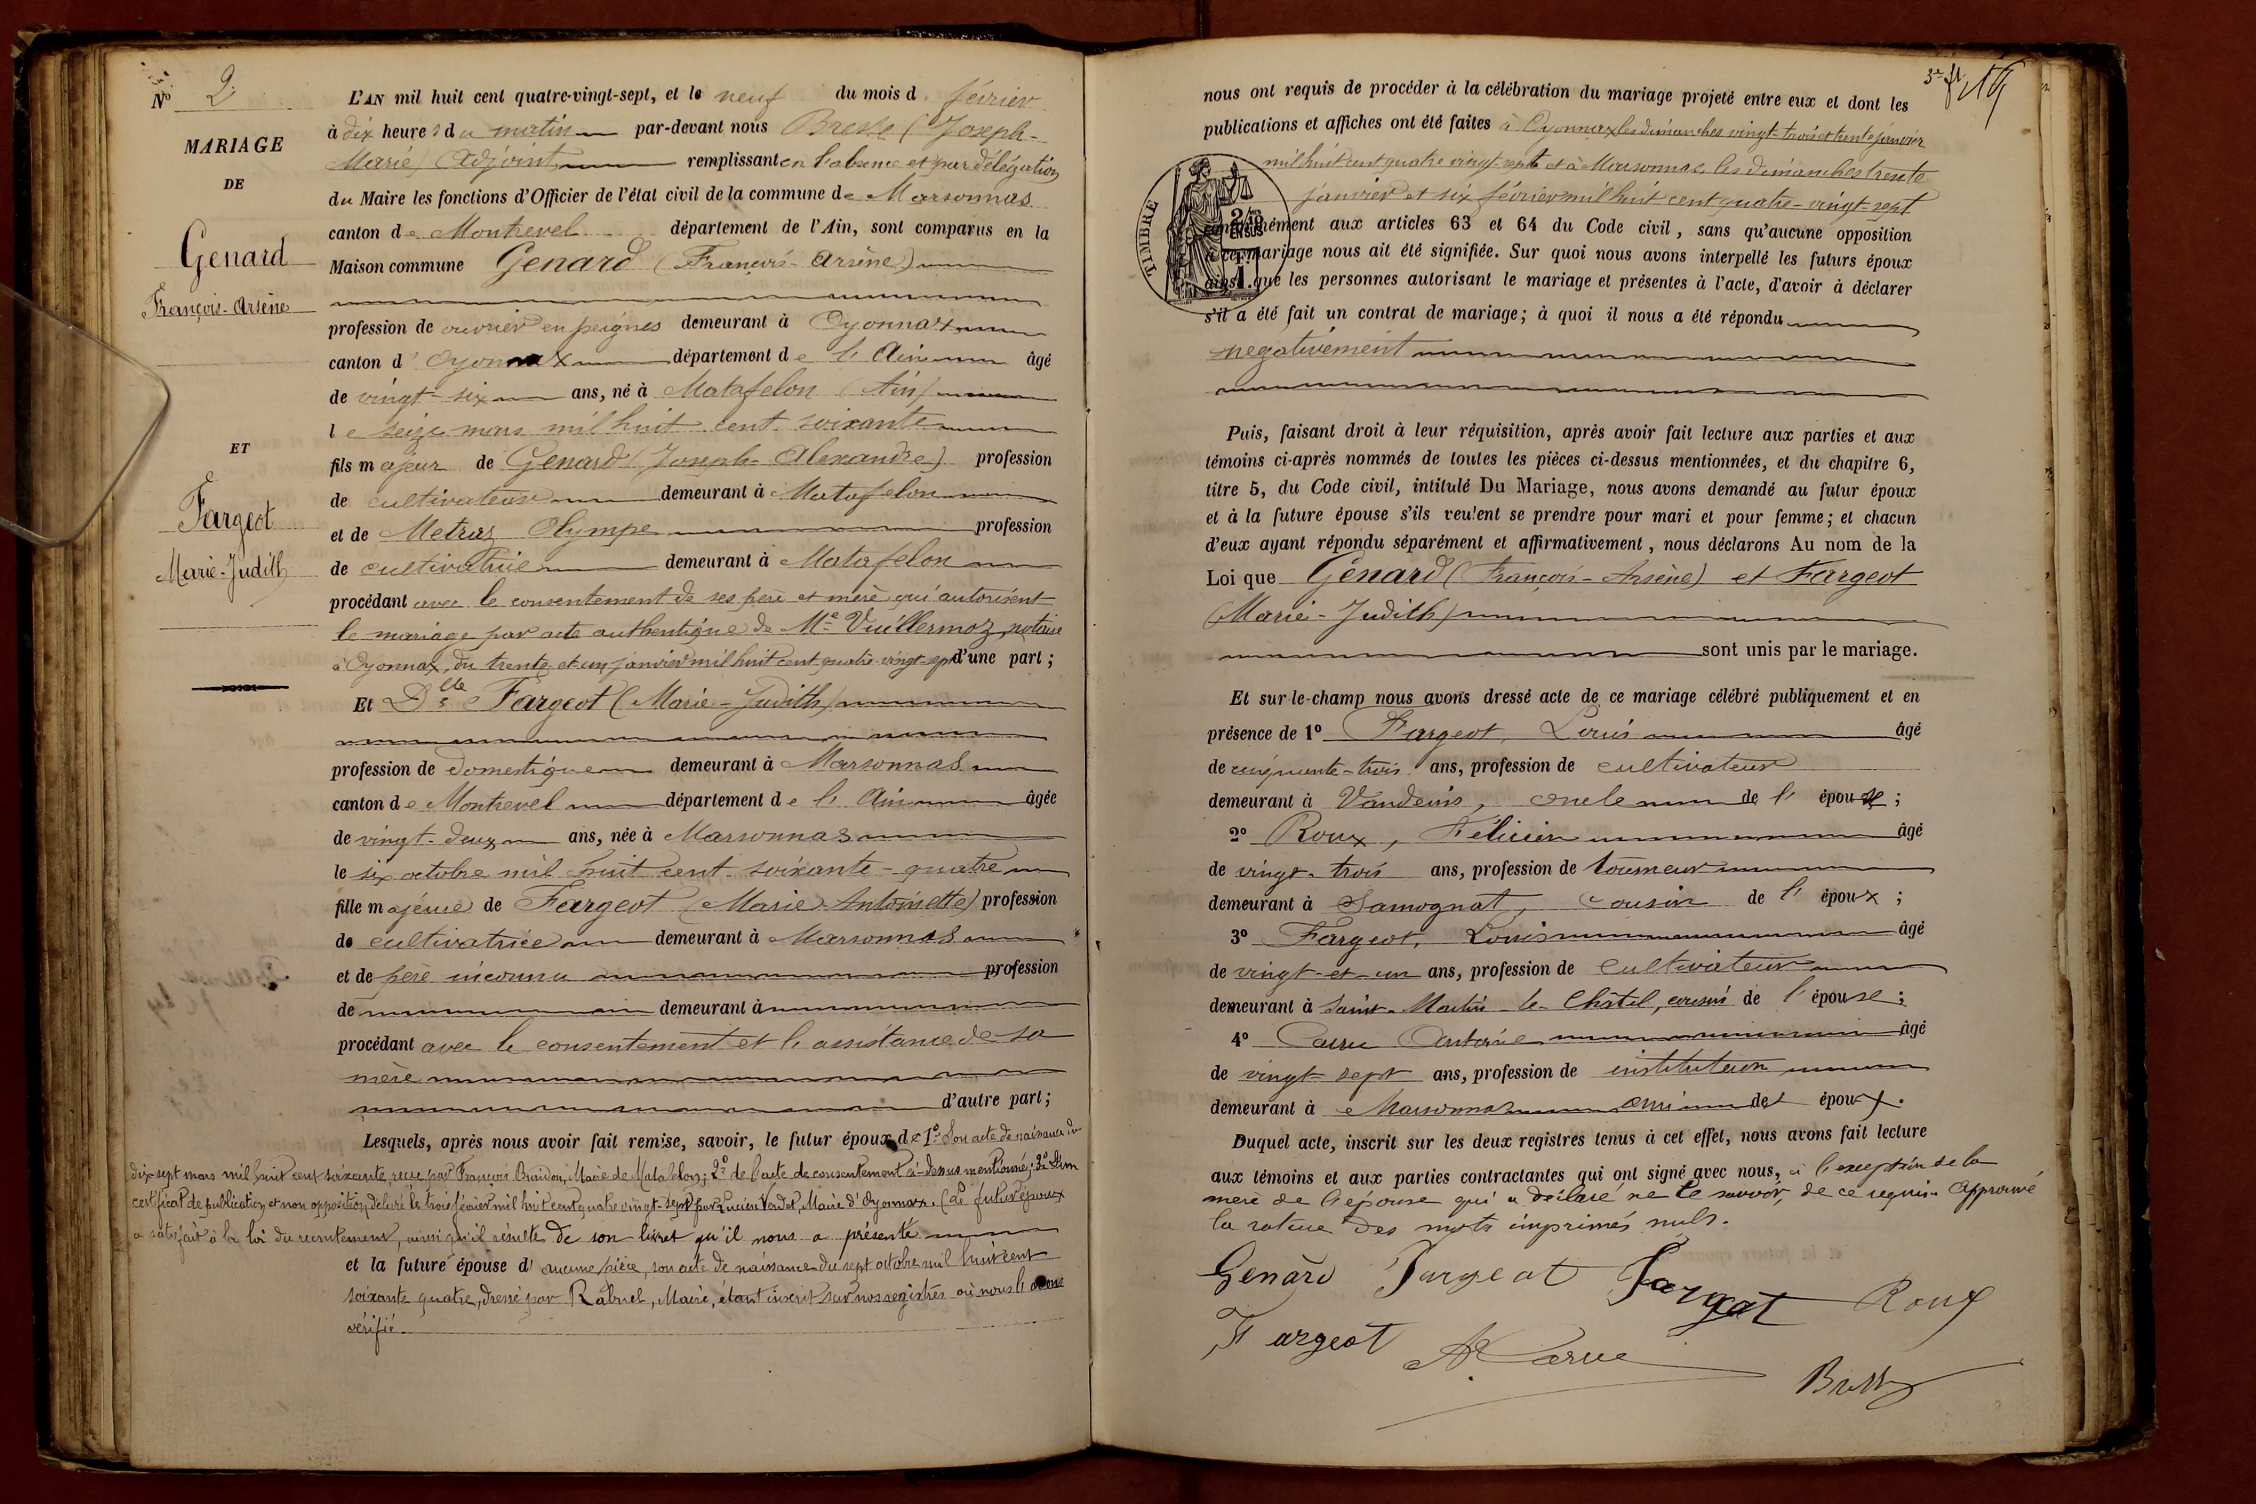 N° 2
MARIAGE
DE
Genard
François-Arsène
ET
Fargeot
Marie-Judith
L'AN mil huit cent quatre-vingt-sept, et le neuf du mois d février
à dix heures du matin par-devant nous Bresse (Joseph-
Marie) Adjoint remplissant en l'absence et par délégation
du Maire les fonctions d'Officier de l'état civil de la commune de Marsonnas
canton de Montrevel département de l'Ain, sont comparus en la
Maison commune Genard (François-Arsène)
profession de ouvrier en peignes demeurant à Oyonnax
canton d'Oyonnax département de l'Ain âgé
de vingt-six ans, né à Matafelon (Ain)
le seize mars mil huit cent soixante
fils majeur de Genard (Joseph-Alexandre) profession
de cultivateur demeurant à Matafelon
et de Metraz Olympe profession
de cultivatrice demeurant à Matafelon
procédant avec le consentement de ses père et mère qui autorisent
le mariage par acte authentique de Me Vuillermoz, notaire
à Oyonnax, du trente et un janvier mil huit cent quatre-vingt-sept d'une part;
Et Dlle Fargeot (Marie-Judith)
profession de domestique demeurant à Marsonnas
canton de Montrevel département de l'Ain âgée
de vingt-deux ans, née à Marsonnas
le six octobre mil huit cent soixante-quatre
fille majeure de Fargeot (Marie Antoinette) profession
de cultivatrice demeurant à Marsonnas
et de père inconnu profession
de demeurant à
procédant avec le consentement et l'assistance de sa
mère
d'autre part;
Lesquels, après nous avoir fait remise, savoir, le futur époux de 1° Son acte de naissance du
dix sept mars mil huit cent soixante, reçu par François Maire de Matafelon; 2° de l'acte de consentement ci-dessus mentionné; 3° d'un
certificat de publication et non opposition délivré le trois février mil huit cent quatre vingt-sept par Lucien Verdet, Maire d'Oyonnax. (Le futur époux
a satisfait à la loi du recrutement, ainsi qu'il résulte de son livret qu'il nous a présenté
et la future épouse d'aucune pièce, son acte de naissance du sept octobre mil huit cent
soixante quatre, dressé par Rabuel, Maire, étant inscrit sur nos registres où nous l'avons
vérifié.
3e ft 14
nous ont requis de procéder à la célébration du mariage projeté entre eux et dont les
publications et affiches ont été faites à Oyonnax les dimanches vingt-trois et trente janvier
mil huit cent quatre vingt-sept et à Marsonnas, les dimanches trente
janvier et six février mil huit cent quatre-vingt-sept
TIMBRE
2/10
EN SUS
conformément aux articles 63 et 64 du Code civil, sans qu'aucune opposition
à ce mariage nous ait été signifiée. Sur quoi nous avons interpellé les futurs époux
ainsi que les personnes autorisant le mariage et présentes à l'acte, d'avoir à déclarer
s'il a été fait un contrat de mariage; à quoi il nous a été répondu
négativement
Puis, faisant droit à leur réquisition, après avoir fait lecture aux parties et aux
témoins ci-après nommés de toutes les pièces ci-dessus mentionnées, et du chapitre 6,
titre 5, du Code civil, intitulé Du Mariage, nous avons demandé au futur époux
et à la future épouse s'ils veulent se prendre pour mari et pour femme; et chacun
d'eux ayant répondu séparément et affirmativement, nous déclarons Au nom de la
Loi que Génard (François-Arsène) et Fargeot
(Marie-Judith)
sont unis par le mariage.
Et sur-le-champ nous avons dressé acte de ce mariage célébré publiquement et en
présence de 1° Fargeot, Louis âgé
de cinquante-trois ans, profession de cultivateur
demeurant à Vandeins, oncle de l'épouse;
2° Roux, Félicien âgé
de vingt-trois ans, profession de tourneur
demeurant à Samognat, cousin de l'époux;
3° Fargeot, Louis âgé
de vingt-et-un ans, profession de cultivateur
demeurant à Saint-Martin-le-Châtel, cousin de l'épouse;
4° Carru Antoine âgé
de vingt-sept ans, profession de instituteur
demeurant à Marsonnas ami de l'époux.
Duquel acte, inscrit sur les deux registres tenus à cet effet, nous avons fait lecture
aux témoins et aux parties contractantes qui ont signé avec nous, à l'exception de la
mère de l'épouse qui a déclaré ne le savoir, de ce requis. Approuvé
la rature des mots imprimés nuls.
Genard Fargeot Fargeot Roux
Fargeot A. Carru
Bresse